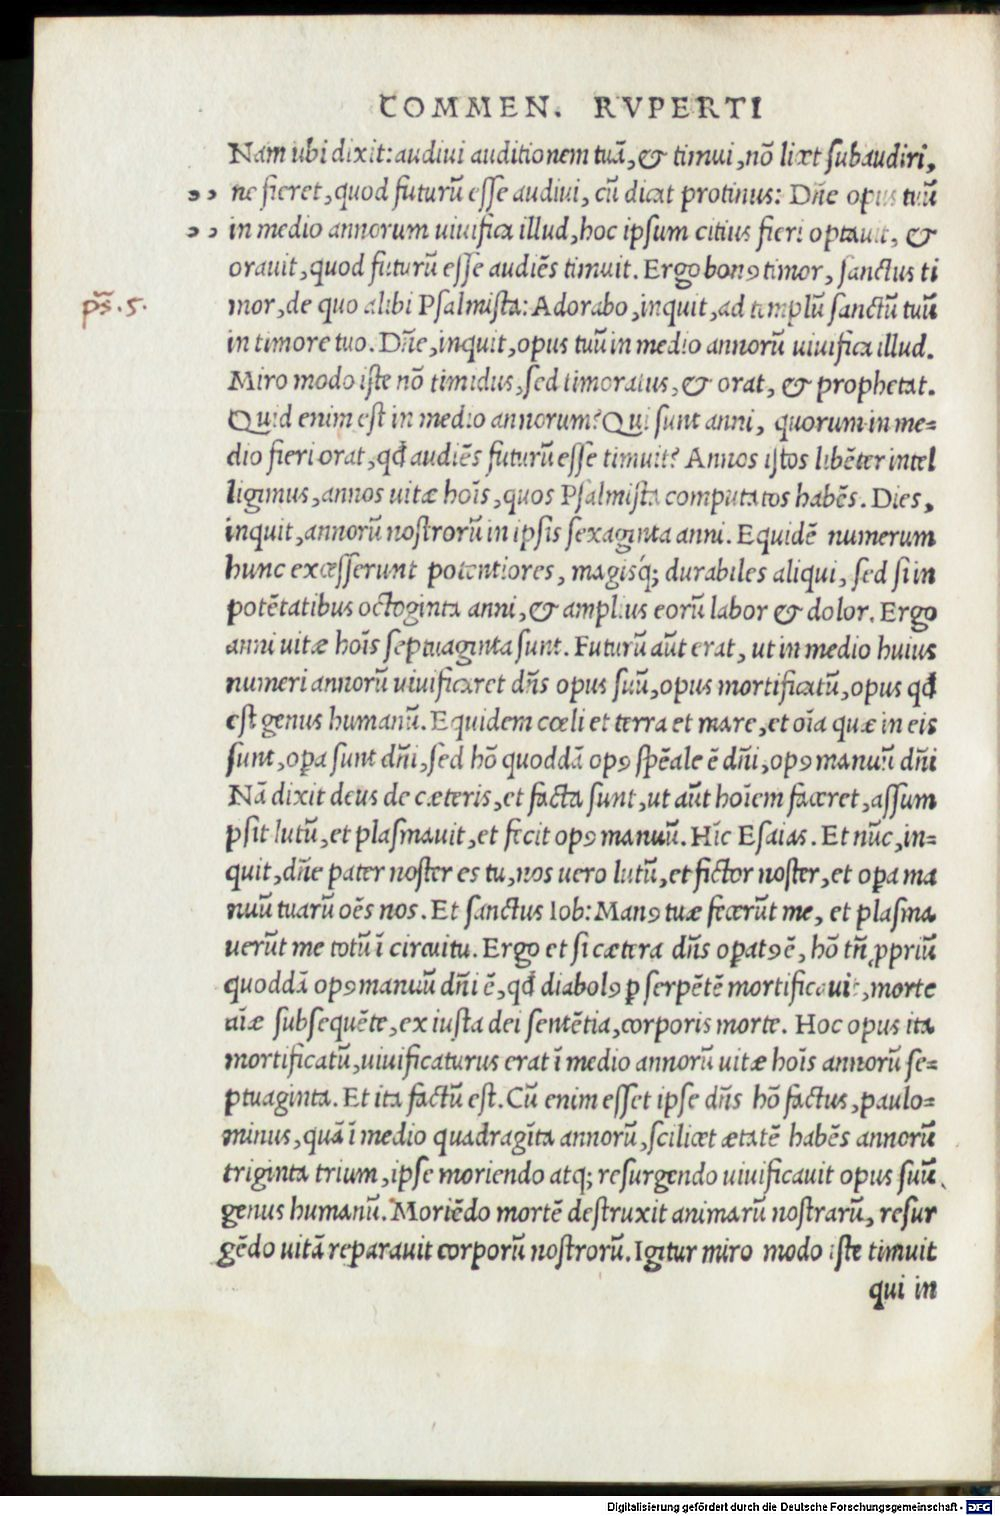 COMMEN. RVPERTI
Nam ubi dixit: audiui auditionem tuā, & timui, nō licet subaudiri,
ne fieret, quod futurū esse audiui, cū dicat protinus: Dn̄e opus tuū
in medio annorum uiuifica illud, hoc ipsum citius fieri optauit, &
orauit, quod futurū esse audiēs timuit. Ergo bonꝰ timor, sanctus ti
ps̄. 5.
mor, de quo alibi Psalmista: Adorabo, inquit, ad templū sanctū tuū
in timore tuo. Dn̄e, inquit, opus tuū in medio annorū uiuifica illud.
Miro modo iste nō timidus, sed timoratus, & orat, & prophetat.
Quid enim est in medio annorum? Qui sunt anni, quorum in me=
dio fieri orat, qđ audiēs futurū esse timuit? Annos istos libēter intel
ligimus, annos uitæ hoīs, quos Psalmista computatos habēs. Dies,
inquit, annorū nostrorū in ipsis sexaginta anni. Equidē numerum
hunc excesserunt potentiores, magisq́; durabiles aliqui, sed si in
potētatibus octoginta anni, & amplius eorū labor & dolor. Ergo
anni uitæ hoīs septuaginta sunt. Futurū aūt erat, ut in medio huius
numeri annorū uiuificaret dn̄s opus suū, opus mortificatū, opus qđ
est genus humanū. Equidem cœli et terra et mare, et oīa quæ in eis
sunt, oꝑa sunt dn̄i, sed hō quoddā opꝰ spēale ē dn̄i, opꝰ manuū dn̄i
Nā dixit deus de cæteris, et facta sunt, ut aūt hoīem faceret, assum
psit lutū, et plasmauit, et fecit opꝰ manuū. Hīc Esaias. Et nūc, in=
quit, dn̄e pater noster es tu, nos uero lutū, et fictor noster, et oꝑa ma
nuū tuarū oēs nos. Et sanctus Iob: Manꝰ tuæ fecerūt me, et plasma
uerūt me totū ī circuitu. Ergo et si cætera dn̄s oꝑatꝰ ē, hō tn̄ ꝓpriū
quoddā opꝰ manuū dn̄i ē, qđ diabolꝰ ꝑ serpētē mortificauit, morte
aīæ subsequēte, ex iusta dei sentētia, corporis morte. Hoc opus ita
mortificatū, uiuificaturus erat ī medio annorū uitæ hoīs annorū se=
ptuaginta. Et ita factū est. Cū enim esset ipse dn̄s hō factus, paulo=
minus, quā ī medio quadragīta annorū, scilicet ætatē habēs annorū
triginta trium, ipse moriendo atq; resurgendo uiuificauit opus suū
genus humanū. Moriēdo mortē destruxit animarū nostrarū, resur
gēdo uitā reparauit corporū nostrorū. Igitur miro modo iste timuit
qui in
Digitalisierung gefördert durch die Deutsche Forschungsgemeinschaft - DFG